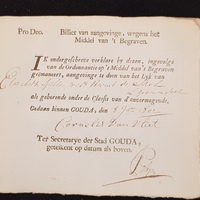 Pro Deo. Billet van aangevinge, wegens het
Middel van 't Begraven.
IK ondergeschreve verklare by dezen, ingevolge
van de Ordonnantie op 't Middel van 't Begraven
geëmaneert, aangevinge te doen van het Lyk van
als gehorende onder de Classis van d'onvermogende,
Gedaan binnen GOUDA; den
Cornelis Van Vliet
Ter Secretarye der Stad GOUDA,
geteekent op datum als boven.